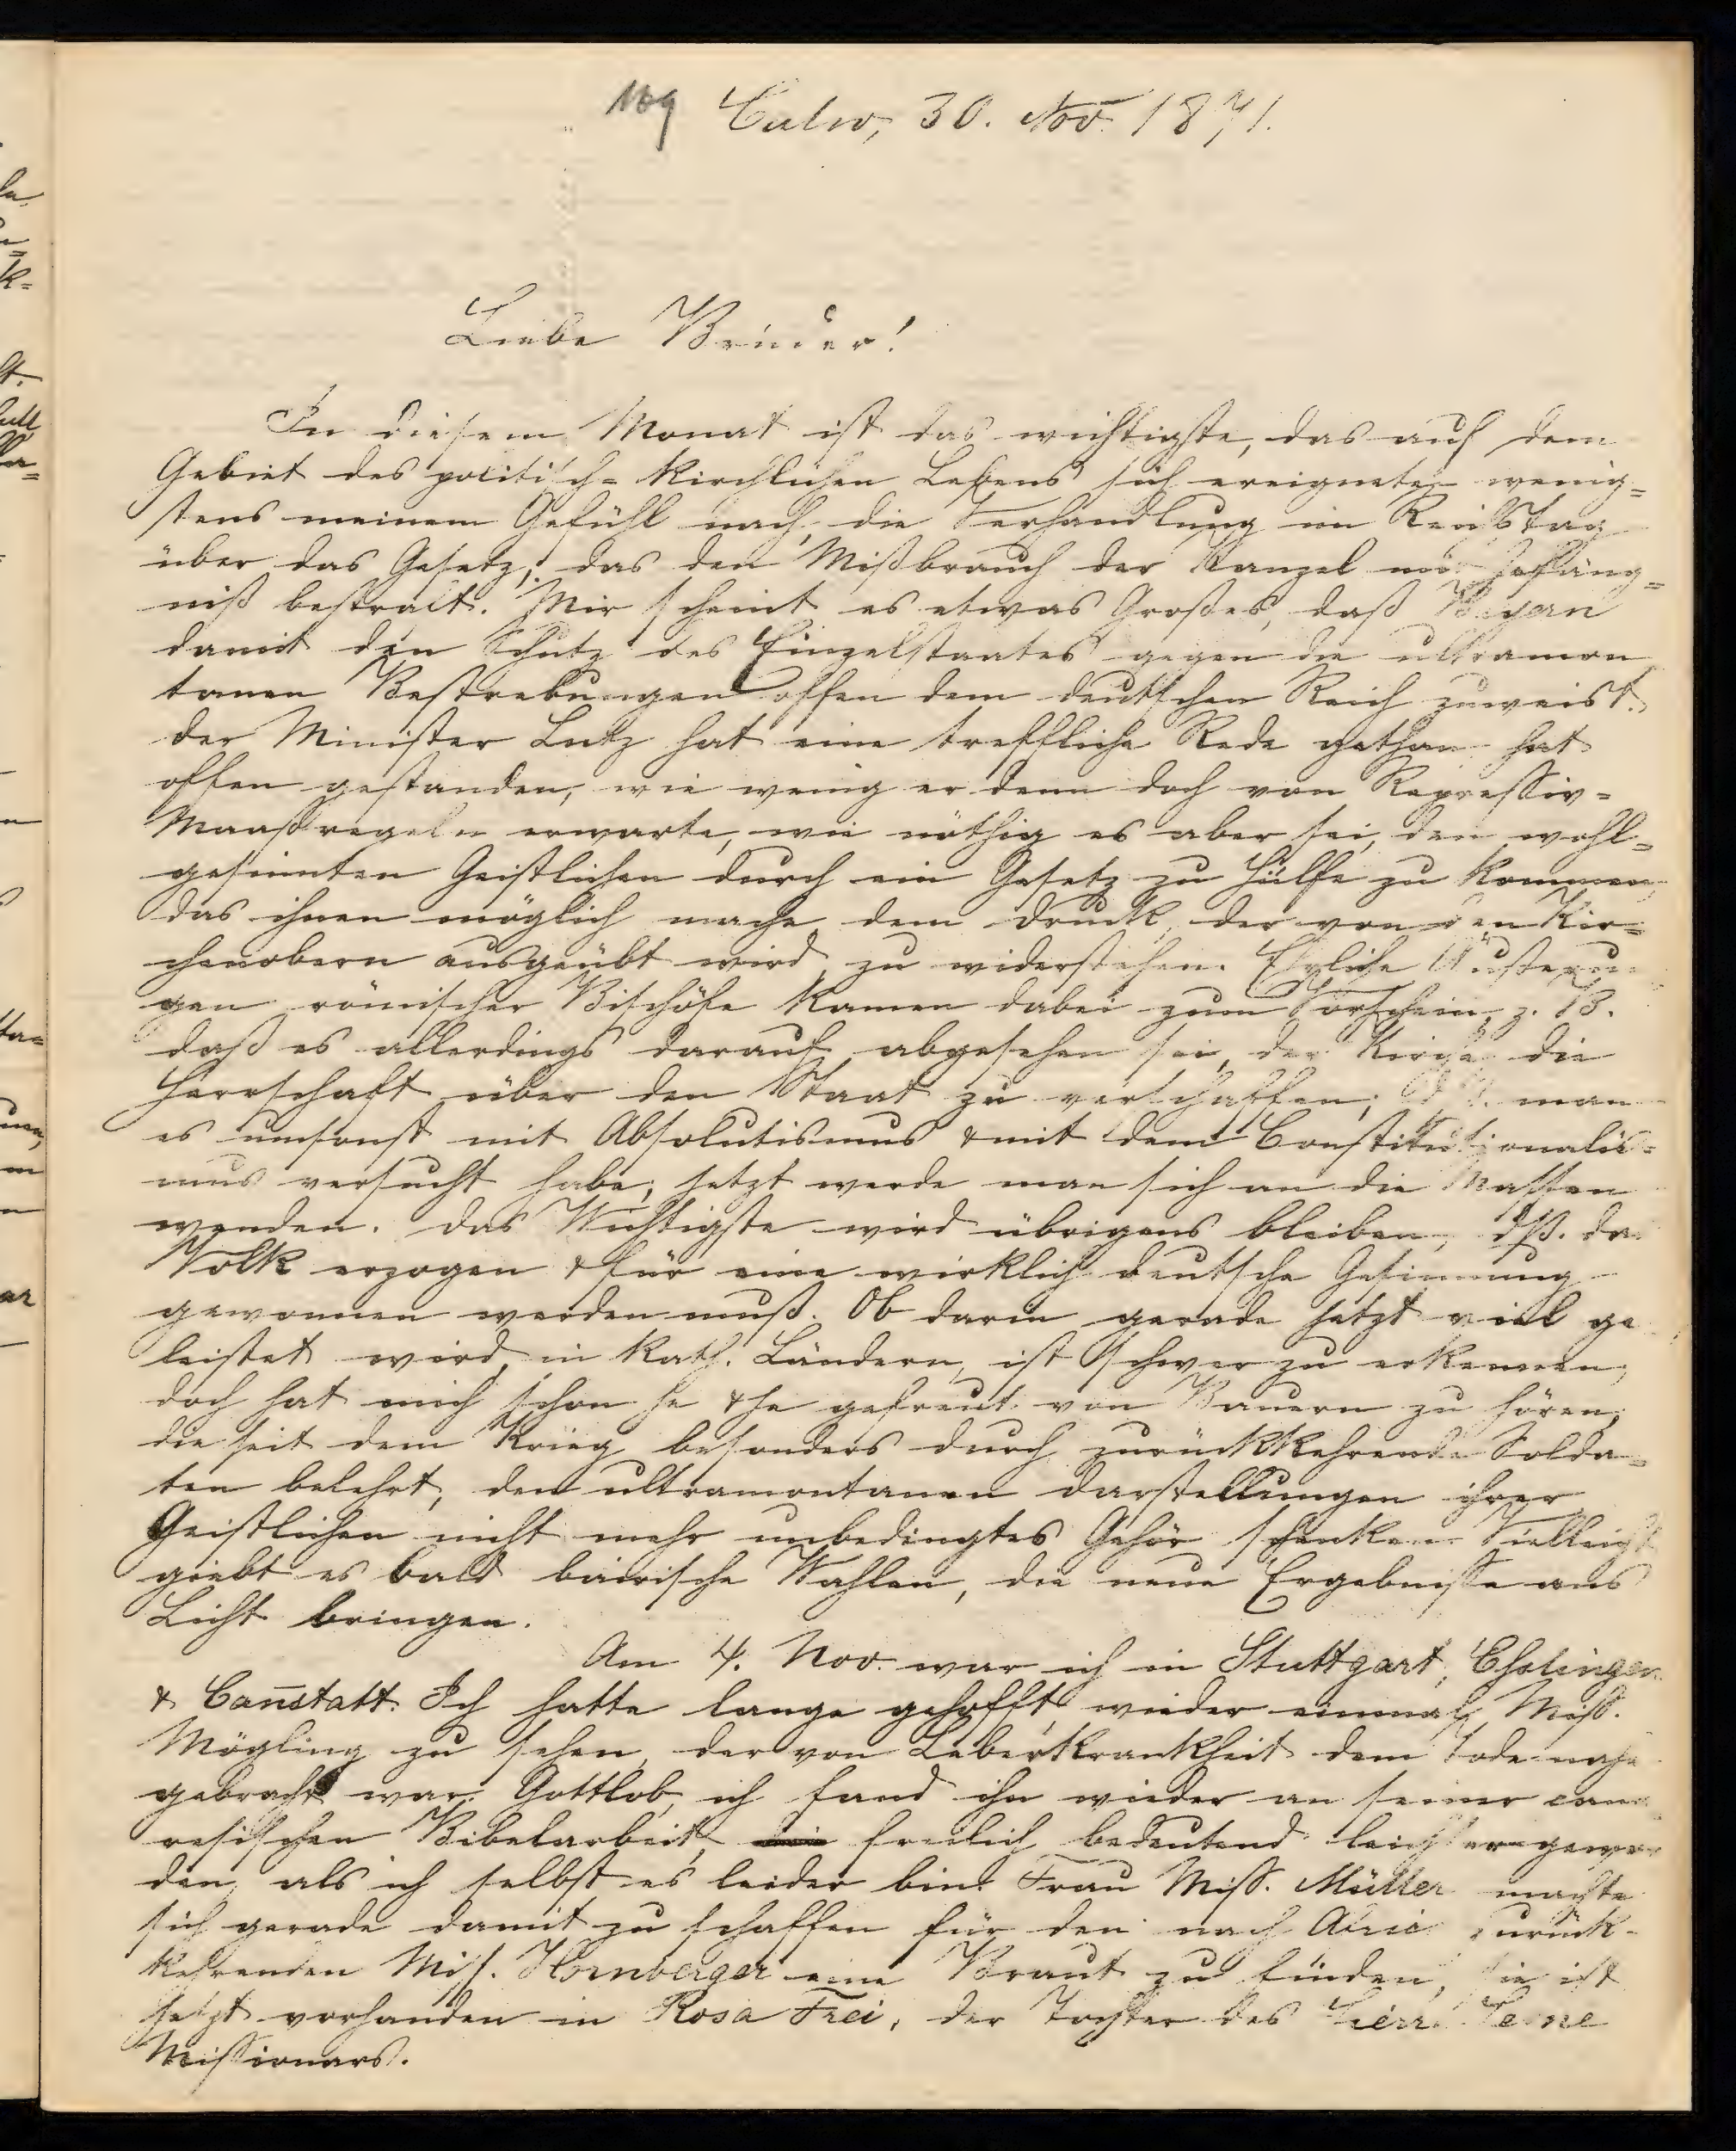 109 Calw, 30. Nov. 1871.
Liebe Brüder!
In diesem Monat ist das wichtigste, das auf dem
Gebiet des politisch-kirchlichen Lebens sich ereignete, wenig-
stens meinem Gefühl nach, die Verhandlung im Reichstag
über das Gesetz, das den Mißbrauch der Kanzel mit Gefäng-
niß bestraft. Mir scheint es etwas Großes, daß Bayern
damit den Schutz des Einzelstaates gegen die ultramon
tanen Bestrebungen offen dem deutschen Reich zuweist.
Der Minister Lutz hat eine treffliche Rede gethan hat
offen gestanden, wie wenig er denn doch von Repressiv-
Maaßregeln erwarte, wie nöthig es aber sei, den wohl-
gesinnten Geistlichen durch ein Gesetz zu Hülfe zu kommen,
das ihnen möglich mache dem Druck, der von den Kir-
chenobern ausgeübt wird, zu widerstehen. Ehrliche Äußerun
gen römischer Bischöfe kamen dabei zum Vorschein, z. B.
daß es allerdings darauf abgesehen sei, der Kirche die
Herrschaft über den Staat zu verschaffen; man
es umsonst mit Absolutismus & mit dem Constitutionalis-
mus versucht habe; jetzt werde man sich an die Massen
wenden. Das Wichtigste wird übrigens bleiben, dß. das
Volk erzogen & für eine wirklich deutsche Gesinnung
gewonnen werden muß. Ob darin gerade jetzt viel ge
leistet wird, in kath. Ländern, ist schwer zu erkennen;
doch hat mich schon je & je gefreut von Bauern zu hören,
die seit dem Krieg besonders durch zurückkehrende Solda-
ten belehrt, den ultramontanen Darstellungen ihrer
Geistlichen nicht mehr unbedingtes Gehör schenken. Vielleicht
giebt es bald bairische Wahlen, die neue Ergebnisse ans
Licht bringen.
Am 4. Nov. war ich in Stuttgart, Esslingen
& Can̄statt. Ich hatte lange gehofft, wieder einmal Miss.
Mögling zu sehen, der von Leberkrankheit dem Tode nahe
gebracht war. Gottlob, ich fand ihn wieder an seiner cana
resischen Bibelarbeit, freilich bedeutend leichter gewor
den, als ich selbst es leider bin. Frau Miss. Müller machte
sich gerade damit zu schaffen für den nach Africa zurück-
kehrenden Miss. Hornberger eine Braut zu finden, sie ist
jetzt vorhanden in Rosa Frei, der Tochter des Sierra Leone
Missionars.